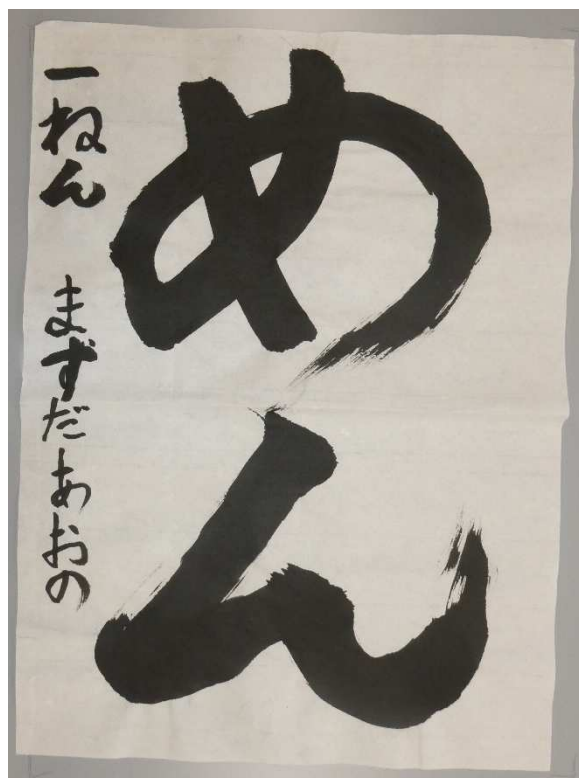 めん
一ねん まずだあおの